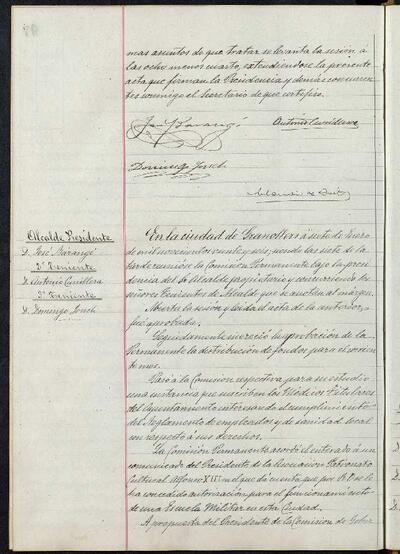 mas asuntos de que tratar se levanta la sesión a
las ocho menos cuarto, extendiéndose la presente
acta que firman la Presidencia y demás concurren
tes conmigo el Secretario de que certifico.
José Barangé
Antonio Cumellera
Domingo Jonch
Alcalde Presidente
D. José Barangé
2º Teniente
D. Antonio Cumellera
3º Teniente
D. Domingo Jonch
En la ciudad de Granollers á siete de Enero
de mil novecientos veinte y seis, siendo las siete de la
tarde reunióse la Comisión Permanente bajo la presi
dencia del Sr. Alcalde y concurriendo los
señores Tenientes de Alcalde que se anotan al margen.
Abierta la sesión y leida el acta de la anterior,
fué aprobada.
Seguidamente mereció la aprobación de la
Permanente la distribución de fondos para el corrien
te mes.
Pasó á la Comisión respectiva para su estudio
una instancia que suscriben los Médicos Titulares
del Ayuntamiento interesando el cumplimiento
del Reglamento de empleados y de sanidad local
con respecto á sus derechos.
La Comisión Permanente acordó el enterado á un
comunicado del Presidente de la Asociación Patronato
Cultural Alfonso XIII en el que dá cuenta que por R.O. se le
ha concedido autorización para el funcionamiento
de una Escuela Militar en esta Ciudad.
A propuesta del Presidente de la Comisión de Gober